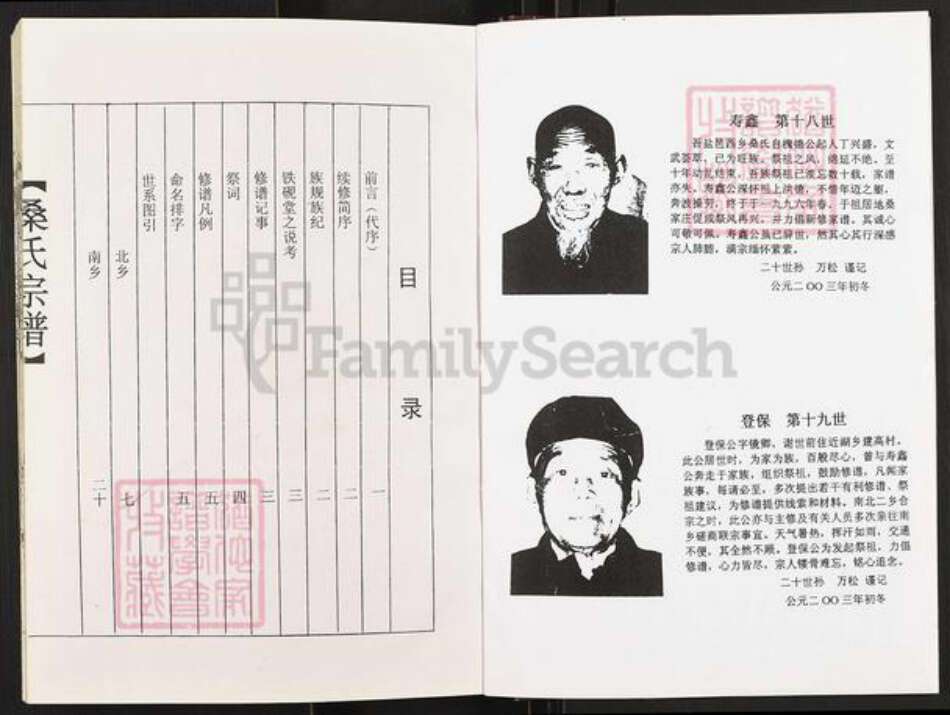 目录
前言（代序） 一
续修简序 二
族规族纪 二
铁砚堂之说考 三
修谱记事 三
祭词 四
修谱凡例 五
命名排字 五
世系图引
北乡 七
南乡 二十
【桑氏宗谱】
寿鑫 第十八世
吾盐邑西乡桑氏自槐德公起人丁兴盛，文
武荟萃，已为旺族。祭祖之风，绵延不绝。至
十年动乱结束，吾族祭祖已淡忘数十载，家谱
亦失。寿鑫公深怀祖上洪德，不惜年迈之躯，
奔波操劳，终于于一九九六年春，于祖居地桑
家庄促成祭风再兴，并力倡新修家谱。其诚心
可敬可佩。寿鑫公虽已辞世，然其心其行深感
宗人肺腑，满宗缅怀萦萦。
二十世孙 万松 谨记
公元二〇〇三年初冬
登保 第十九世
登保公字镜卿，谢世前住近湖乡建高村。
此公居世时，为家为族，百般尽心，曾与寿鑫
公奔走于家族，组织祭祖，鼓励修谱，凡阖家
族事，每请必至，多次提出若干有利修谱、祭
祖建议，为修谱提供线索和材料。南北二乡合
宗之时，此公亦与主修及有关人员多次亲往南
乡磋商联宗事宜。天气暑热，挥汗如雨，交通
不便，其全然不顾。登保公为发起祭祖，力倡
修谱，心力皆尽，宗人镂骨难忘，铭心追念。
二十世孙 万松 谨记
公元二〇〇三年初冬
FamilySearch